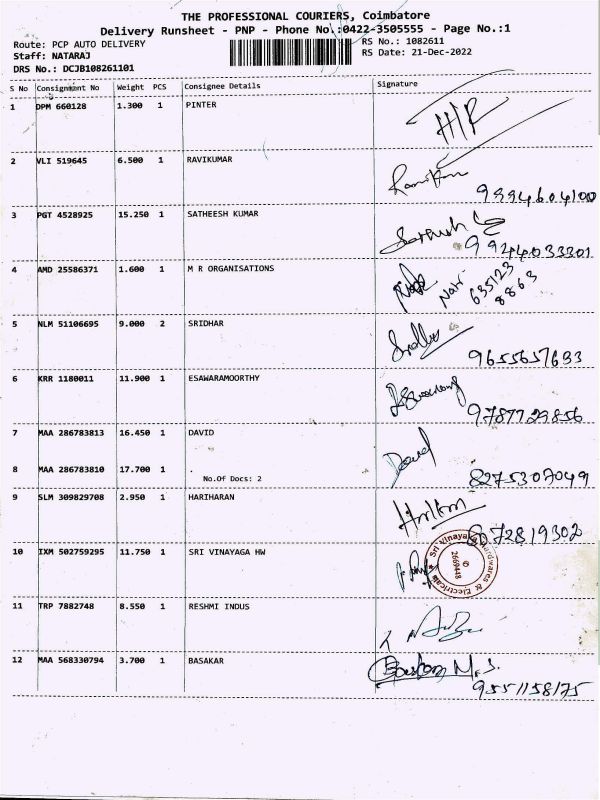 THE PROFESSIONAL COURIERS, Coimbatore
Delivery Runsheet - PNP - Phone No.:0422-3505555 - Page No.:1
Route: PCP AUTO DELIVERY
RS No.: 1082611
Staff: NATARAJ
RS Date: 21-Dec-2022
DRS No.: DCJB108261101
S No Consignment No Weight PCS Consignee Details Signature
1 DPM 660128 1.300 1 PINTER
H/R
2 VLI 519645 6.500 1 RAVIKUMAR
9994604100
3 PGT 4528925 15.250 1 SATHEESH KUMAR
4 AMD 25586371 1.600 1 M R ORGANISATIONS
635123
8863
5 NLM 51106695 9.000 2 SRIDHAR
Sridhar
9655657693
6 KRR 1180011 11.900 1 ESAWARAMOORTHY
9787729856
7 MAA 286783813 16.450 1 DAVID
David
8 MAA 286783810 17.700 1 .
No.Of Docs: 2
8275307049
9 SLM 309829708 2.950 1 HARIHARAN
72819302
10 IXM 502759295 11.750 1 SRI VINAYAGA HW
Sri Vinayaga Hardwares & Electricals
2669448
11 TRP 7882748 8.550 1 RESHMI INDUS
12 MAA 568330794 3.700 1 BASAKAR
Baskar M.S.
9551158175